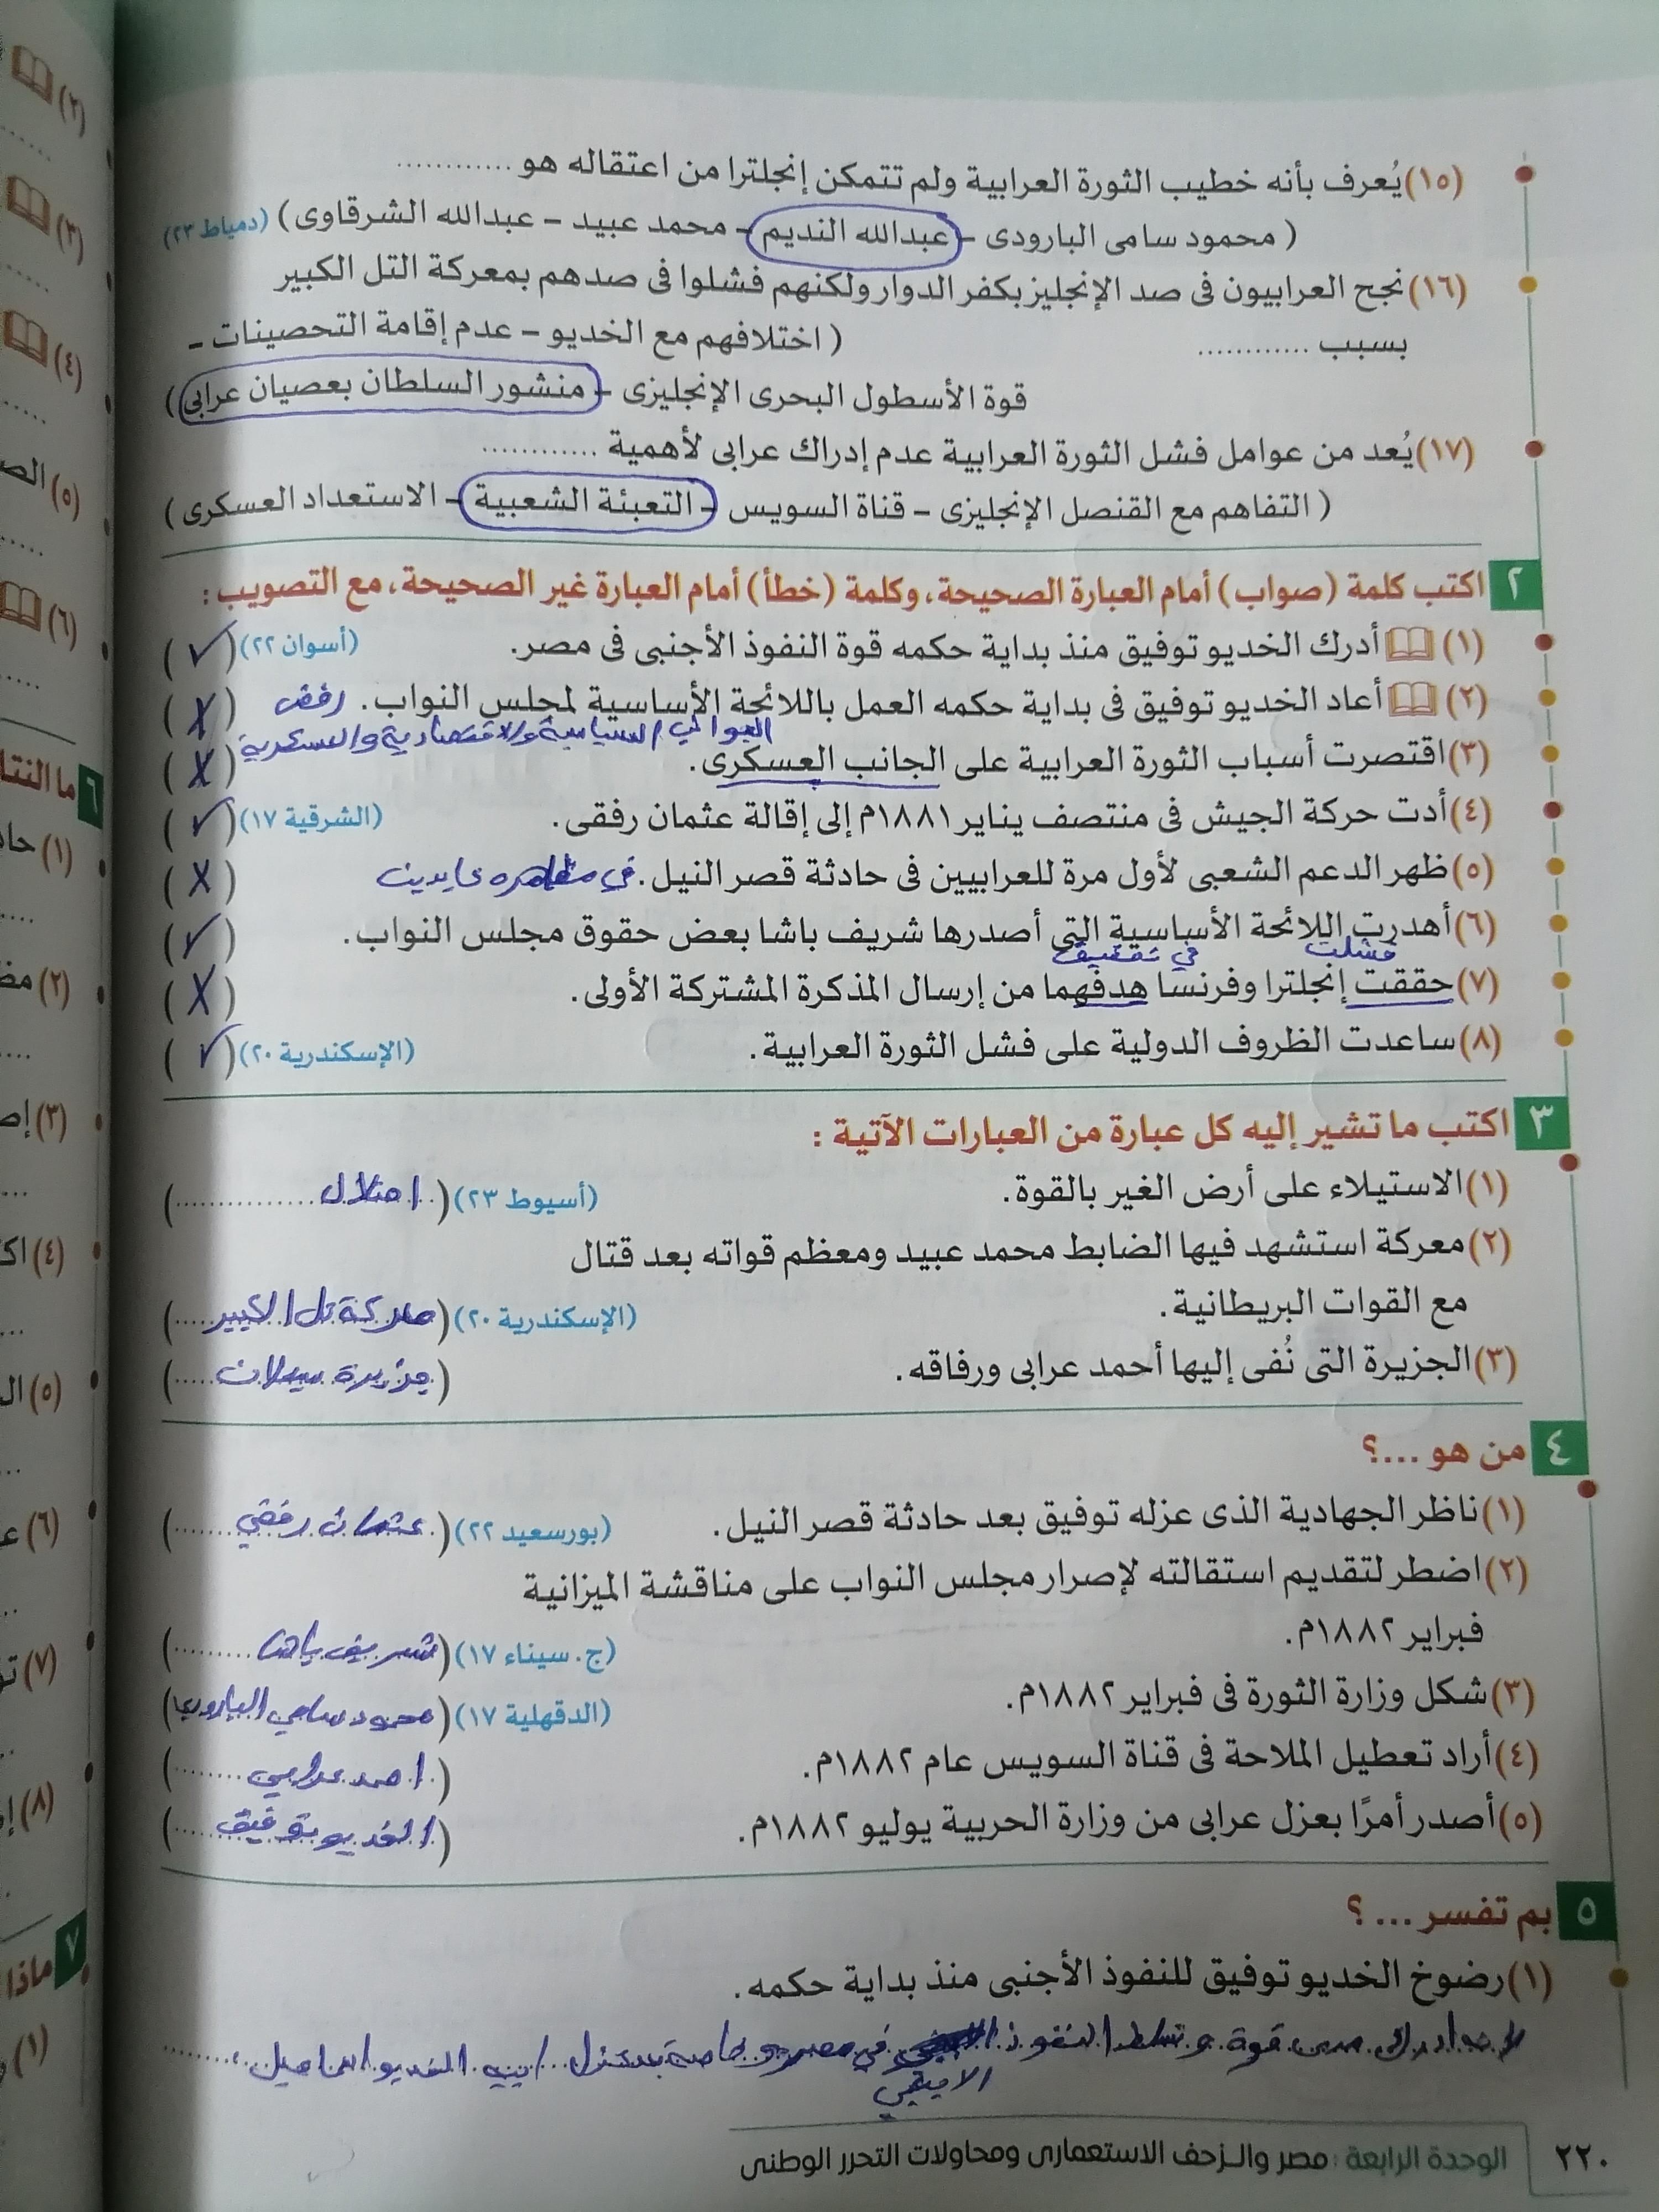 (١٥) يُعرف بأنه خطيب الثورة العرابية ولم تتمكن إنجلترا من اعتقاله هو ............
( محمود سامى البارودى – عبدالله النديم – محمد عبيد – عبدالله الشرقاوى ) (دمياط ٢٣)
(١٦) نجح العرابيون فى صد الإنجليز بكفر الدوار ولكنهم فشلوا فى صدهم بمعركة التل الكبير
بسبب ............ ( اختلافهم مع الخديو – عدم إقامة التحصينات –
قوة الأسطول البحرى الإنجليزى – منشور السلطان بعصيان عرابى )
(١٧) يُعد من عوامل فشل الثورة العرابية عدم إدراك عرابى لأهمية ............
( التفاهم مع القنصل الإنجليزى – قناة السويس – التعبئة الشعبية – الاستعداد العسكرى )
٢ اكتب كلمة (صواب) أمام العبارة الصحيحة، وكلمة (خطأ) أمام العبارة غير الصحيحة، مع التصويب :
(١) أدرك الخديو توفيق منذ بداية حكمه قوة النفوذ الأجنبى فى مصر. (أسوان ٢٢) (✓)
(٢) أعاد الخديو توفيق فى بداية حكمه العمل باللائحة الأساسية لمجلس النواب. رفض (X)
الجوانب السياسية والاقتصادية والعسكرية
(٣) اقتصرت أسباب الثورة العرابية على الجانب العسكرى. (X)
(٤) أدت حركة الجيش فى منتصف يناير ١٨٨١م إلى إقالة عثمان رفقى. (الشرقية ١٧) (✓)
(٥) ظهر الدعم الشعبى لأول مرة للعرابيين فى حادثة قصر النيل. في مظاهره عابدين (X)
(٦) أهدرت اللائحة الأساسية التى أصدرها شريف باشا بعض حقوق مجلس النواب. (✓)
فشلت في تحقيق
(٧) حققت إنجلترا وفرنسا هدفهما من إرسال المذكرة المشتركة الأولى. (X)
(٨) ساعدت الظروف الدولية على فشل الثورة العرابية. (الإسكندرية ٢٠) (✓)
٣ اكتب ما تشير إليه كل عبارة من العبارات الآتية :
(١) الاستيلاء على أرض الغير بالقوة. (أسيوط ٢٣) (احتلال)
(٢) معركة استشهد فيها الضابط محمد عبيد ومعظم قواته بعد قتال
مع القوات البريطانية. (الإسكندرية ٢٠) (معركة تل الكبير)
(٣) الجزيرة التى نُفى إليها أحمد عرابى ورفاقه. (جزيرة سيلان)
٤ من هو ...؟
(١) ناظر الجهادية الذى عزله توفيق بعد حادثة قصر النيل. (بورسعيد ٢٢) (عثمان رفقي)
(٢) اضطر لتقديم استقالته لإصرار مجلس النواب على مناقشة الميزانية
فبراير ١٨٨٢م. (ج. سيناء ١٧) (شريف باشا)
(٣) شكل وزارة الثورة فى فبراير ١٨٨٢م. (الدقهلية ١٧) (محمود سامي البارودي)
(٤) أراد تعطيل الملاحة فى قناة السويس عام ١٨٨٢م. (احمد عرابي)
(٥) أصدر أمرًا بعزل عرابى من وزارة الحربية يوليو ١٨٨٢م. (الخديو توفيق)
٥ بم تفسر ... ؟
(١) رضوخ الخديو توفيق للنفوذ الأجنبى منذ بداية حكمه.
ادرك مدى قوة وتسلط النفوذ في مصر وخاصة بعد عزل ابيه الخديو اسماعيل
الاجنبي
٢٢٠ الوحدة الرابعة : مصر والزحف الاستعمارى ومحاولات التحرر الوطنى
(٢)
(٣)
(٤)
(٥) الص
(٦)
٦ ما النتا
(١) حاد
(٢) مظ
(٣) إص
(٤) اك
(٥) ال
(٦) ع
(٧) تو
(٨) إ
٧ ماذا
(١)